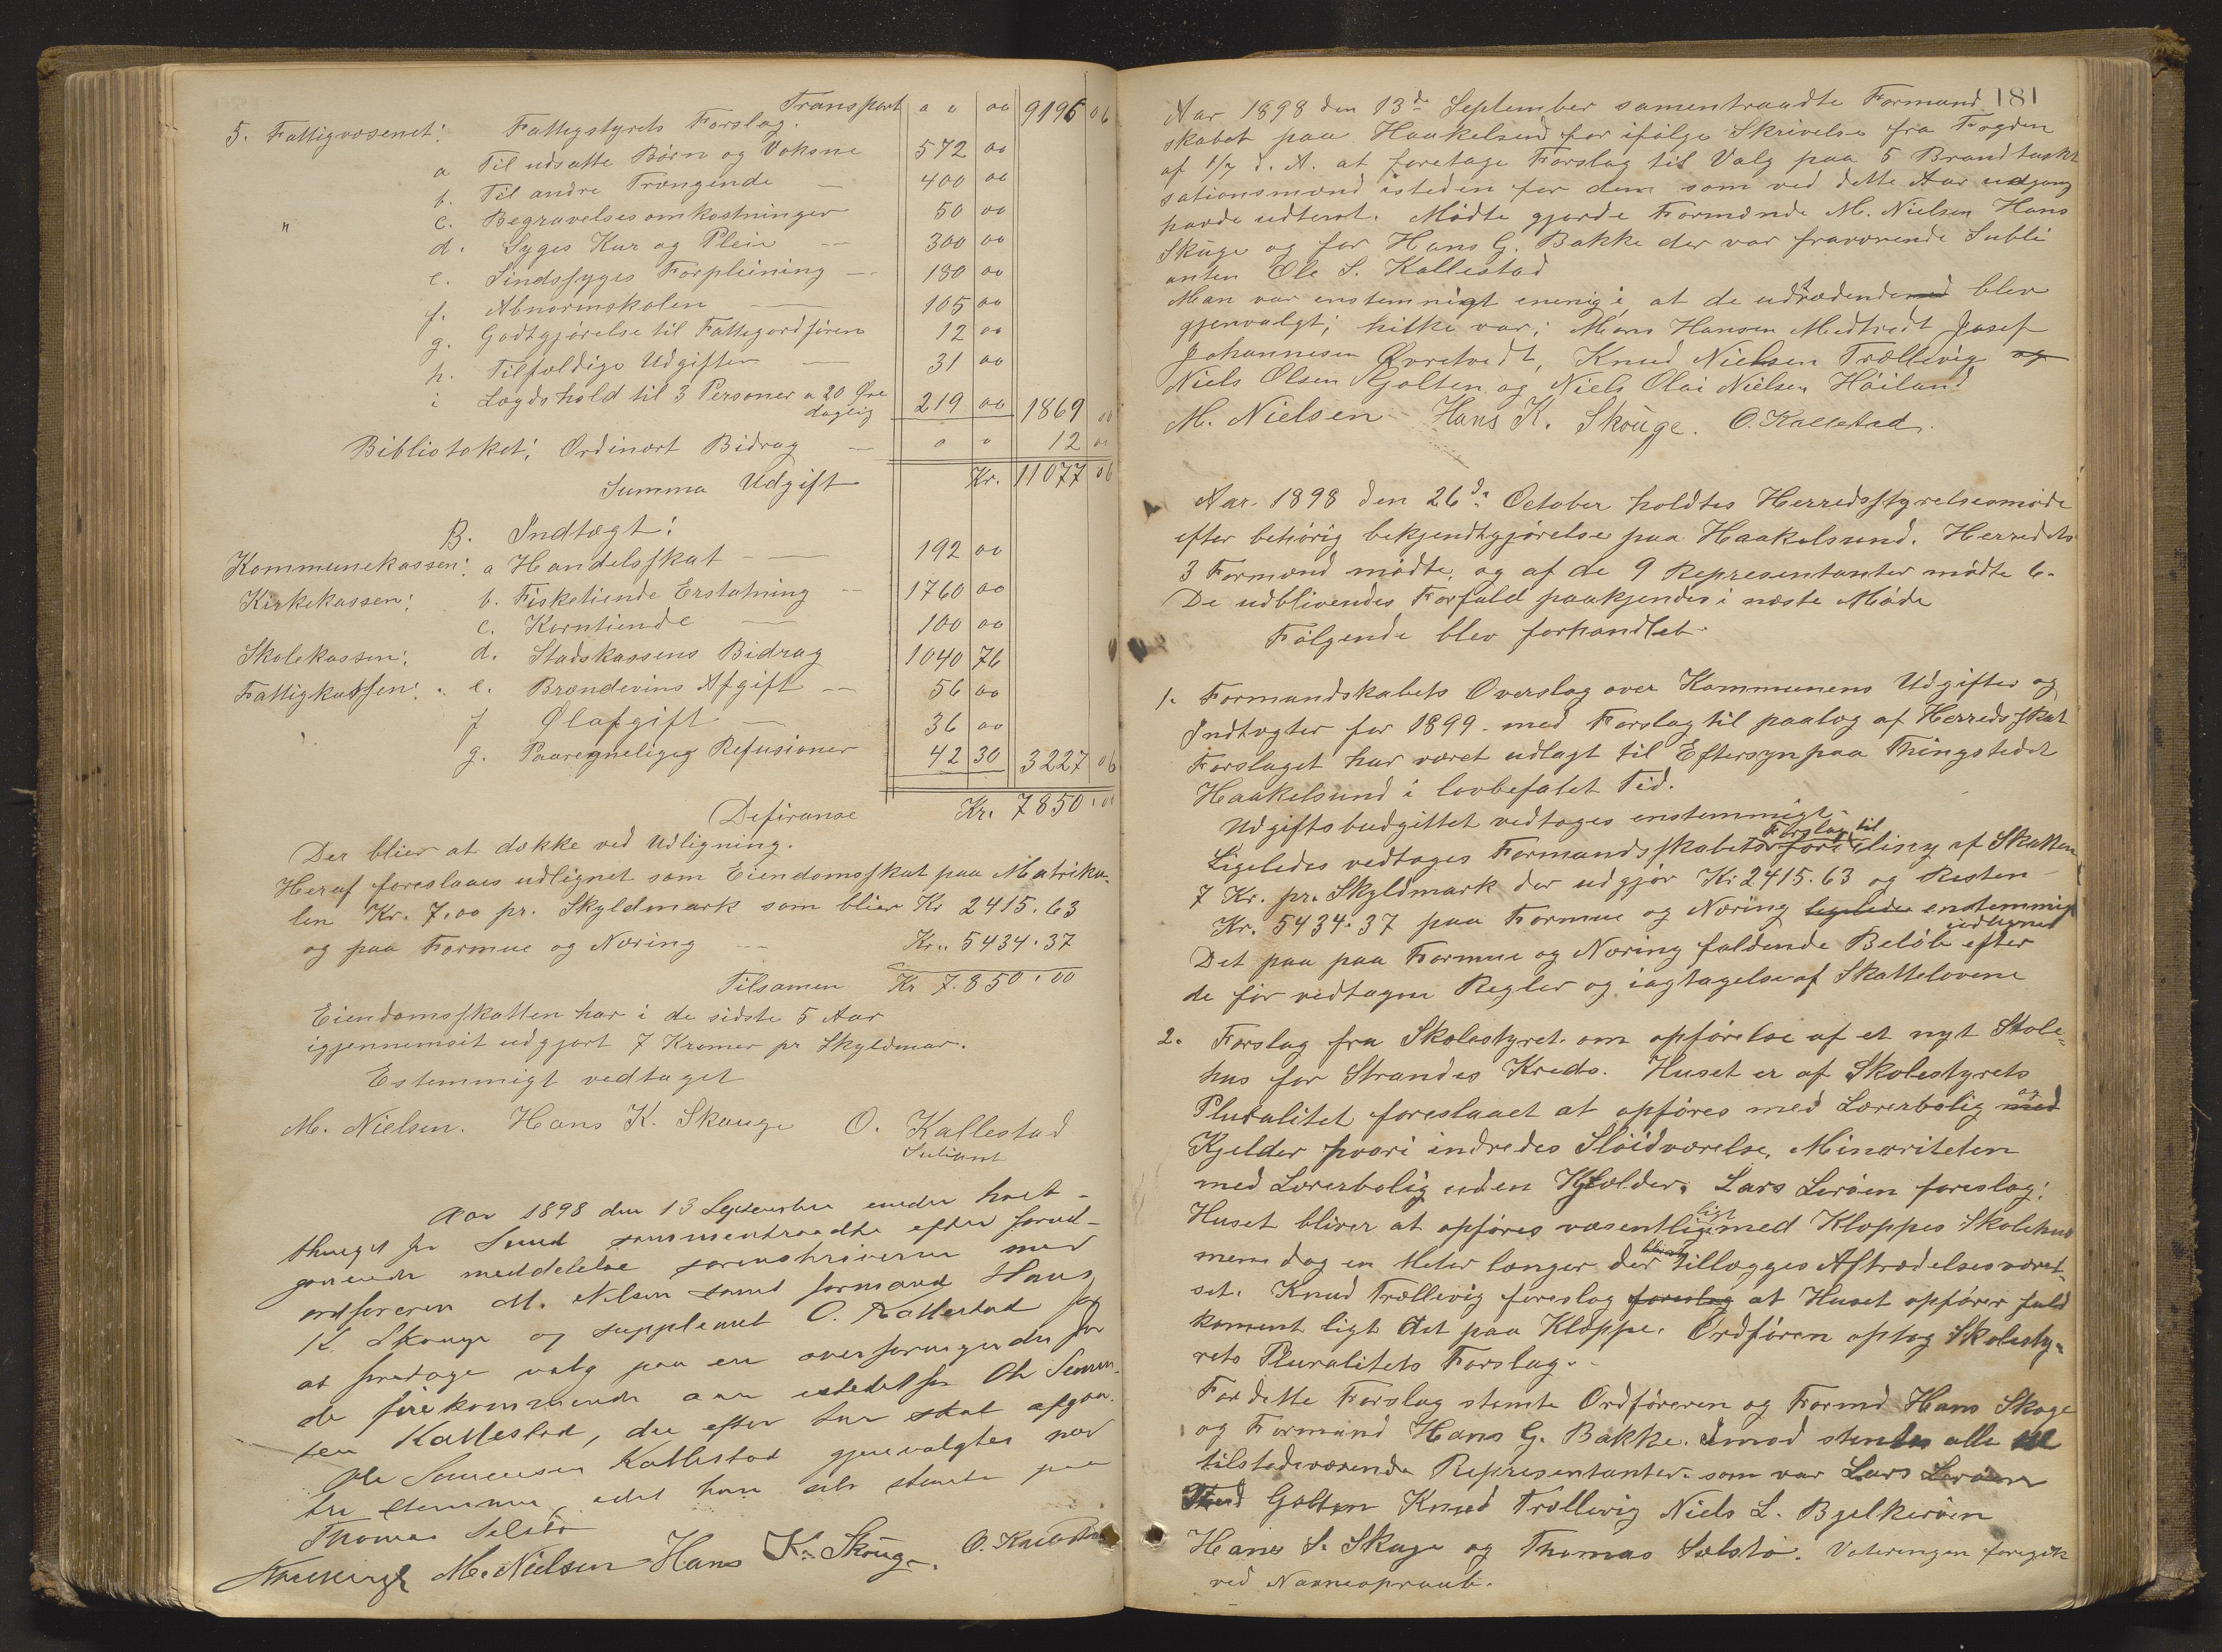 Transport " " 00 9196 06
5. Fattigvæsenet: Fattigstyrets Forslag.
a Til udsatte Børn og Voksne 572 00
b. Til andre Trængende — 400 00
" c. Begravelsesomkostninger 50 00
d. Syges Kur og Pleie — 300 00
e. Sindssyges Forpleining — 180 00
f. Abnormskolen — 105 00
g. Godtgjørelse til Fattigordføren 12 00
h. Tilfældige Udgifter — 31 00
i Lægdshold til 3 Personer a 20 Øre daglig 219 00 1869 00
Biblioteket: Ordinært Bidrag — " " 12 00
Summa Udgift Kr. 11077 06
B. Indtægt:
Kommunekassen: a Handelsskat — 192 00
Kirkekassen: b. Fisketiende Erstatning — 1760 00
c. Korntiende — 100 00
Skolekassen: d. Stadskassens Bidrag 1040 76
Fattigkassen: e. Brændevins Afgift — 56 00
f Ølafgift — 36 00
g. Paaregnelige Refusioner 42 30 3227 06
Defiranse Kr. 7850.00
Der blier at dække ved Udligning.
Heraf foreslaaes udlignet som Eiendomsskat paa Matriku-
len Kr. 7,00 pr. Skyldmark som blier Kr 2415.63
og paa Formue og Næring — Kr. 5434.37
Tilsamen Kr 7.850.00
Eiendomsskatten har i de sidste 5 Aar
igjennemsit udgjort 7 Kroner pr Skyldmar.
Estemmigt vedtaget
M. Nielsen. Hans K. Skauge O. Kallestad
Suliant
Aar 1898 den 13 September under høst-
thinget for Sund sammentraadte efter forud-
gaaende meddelelse sorenskriveren med
ordføreren M. Nilsen samt formand Hans
K. Skauge og suppleant O. Kallestad for
at foretage valg paa en overformynder for
de fire kommende aar istedet for Ole
Kallestad, der efter tur skal afgaa.
Ole Kallestad gjenvalgtes med
tre stemmer, idet han selv stemte paa
Thomas Selstø
M. Nielsen Hans K. Skoug. O. Kallestad
181
Aar 1898 den 13de September samentraadte Formand
skabet paa Haakelsund for ifølge Skrivelse fra Fogden
af 1/7 d. A. at foretage Forslag til Valg paa 5 Brandtaskt
sationsmænd isteden for dem som ved dette Aar udgang
havde udtient. Mødte gjorde Formænde M. Nielsen Hans
Skuge og for Hans G. Bakke der var fraværende Subli
anten Ole S. Kallestad
Man var enstemnigt enerig i, at de udtrædende blev
gjenvalgt; hilke var: Mons Hansen Midtvedt Josef
Johannesen Øvretvedt, Knud Nielsen Trællevig og
Niels Olsen Golten og Niels Olai Nielsen Høiland
M. Nielsen Hans K. Skouge. O. Kallestad.
Aar 1898 den 26de October holdtes Herredsstyrelsesmøde
efter behørig bekjendtgjørelse paa Haakelsund. Herredets
3 Formænd mødte, og af de 9 Representanter mødte 6.
De udblivendes Forfald paakjendes i næste Møde
Følgende blev forhandlet.
1. Formandskabets Overslag over Kommunens Udgifter og
Indtægter for 1899. med Forslag til paalæg af Herredsskat
Forslaget har været udlagt til Eftersyn paa Thingstedet
Haakelsund i lovbefalet Tid.
Udgiftsbudgittet vedtages enstemmigt.
Ligeledes vedtages Formandsskabets Forslag til af Skatten
7 Kr. pr. Skyldmark der udgjør Kr 2415.63 og Resten
Kr. 5434.37 paa Formue og Næring ligeledes enstemmig
Det paa paa Formue og Næring faldende Beløb udlignes efter
de før vedtagne Regler og iagtagelse af Skattelovene
2. Forslag fra Skolestyret om opførelse af et nyt Skole-
hus for Strandes Kreds. Huset er af Skolestyrets
Pluralitet foreslaaet at opføres med Lærerbolig og
Kjelder hvori indredes Sløidværelse, Minoriteten
med Lærerbolig uden Kjælder. Lars Lerøen foreslog:
Huset bliver at opføres væsentlig ligt med Kloppes Skolehus
men dog en Meter længer der tillægges Aftrædelsesværel-
set. Knud Trællevig foreslog foreslog at Huset opfører fuld
koment ligt det paa Kloppe. Ordføren optog Skolesty-
rets Pluralitets Forslag.
For dette Forslag stemte Ordføreren og Formd Hans Skoge
og Formand Hans G. Bakke. Imod stemtes alle
tilstedeværende Representanter som var Lars Lerøen
Golten Knud Trællevig Niels L. Bjelkerøen
Hans S. Skage og Thomas Sælstø. Voteringen foregik
ved Navneopraab.